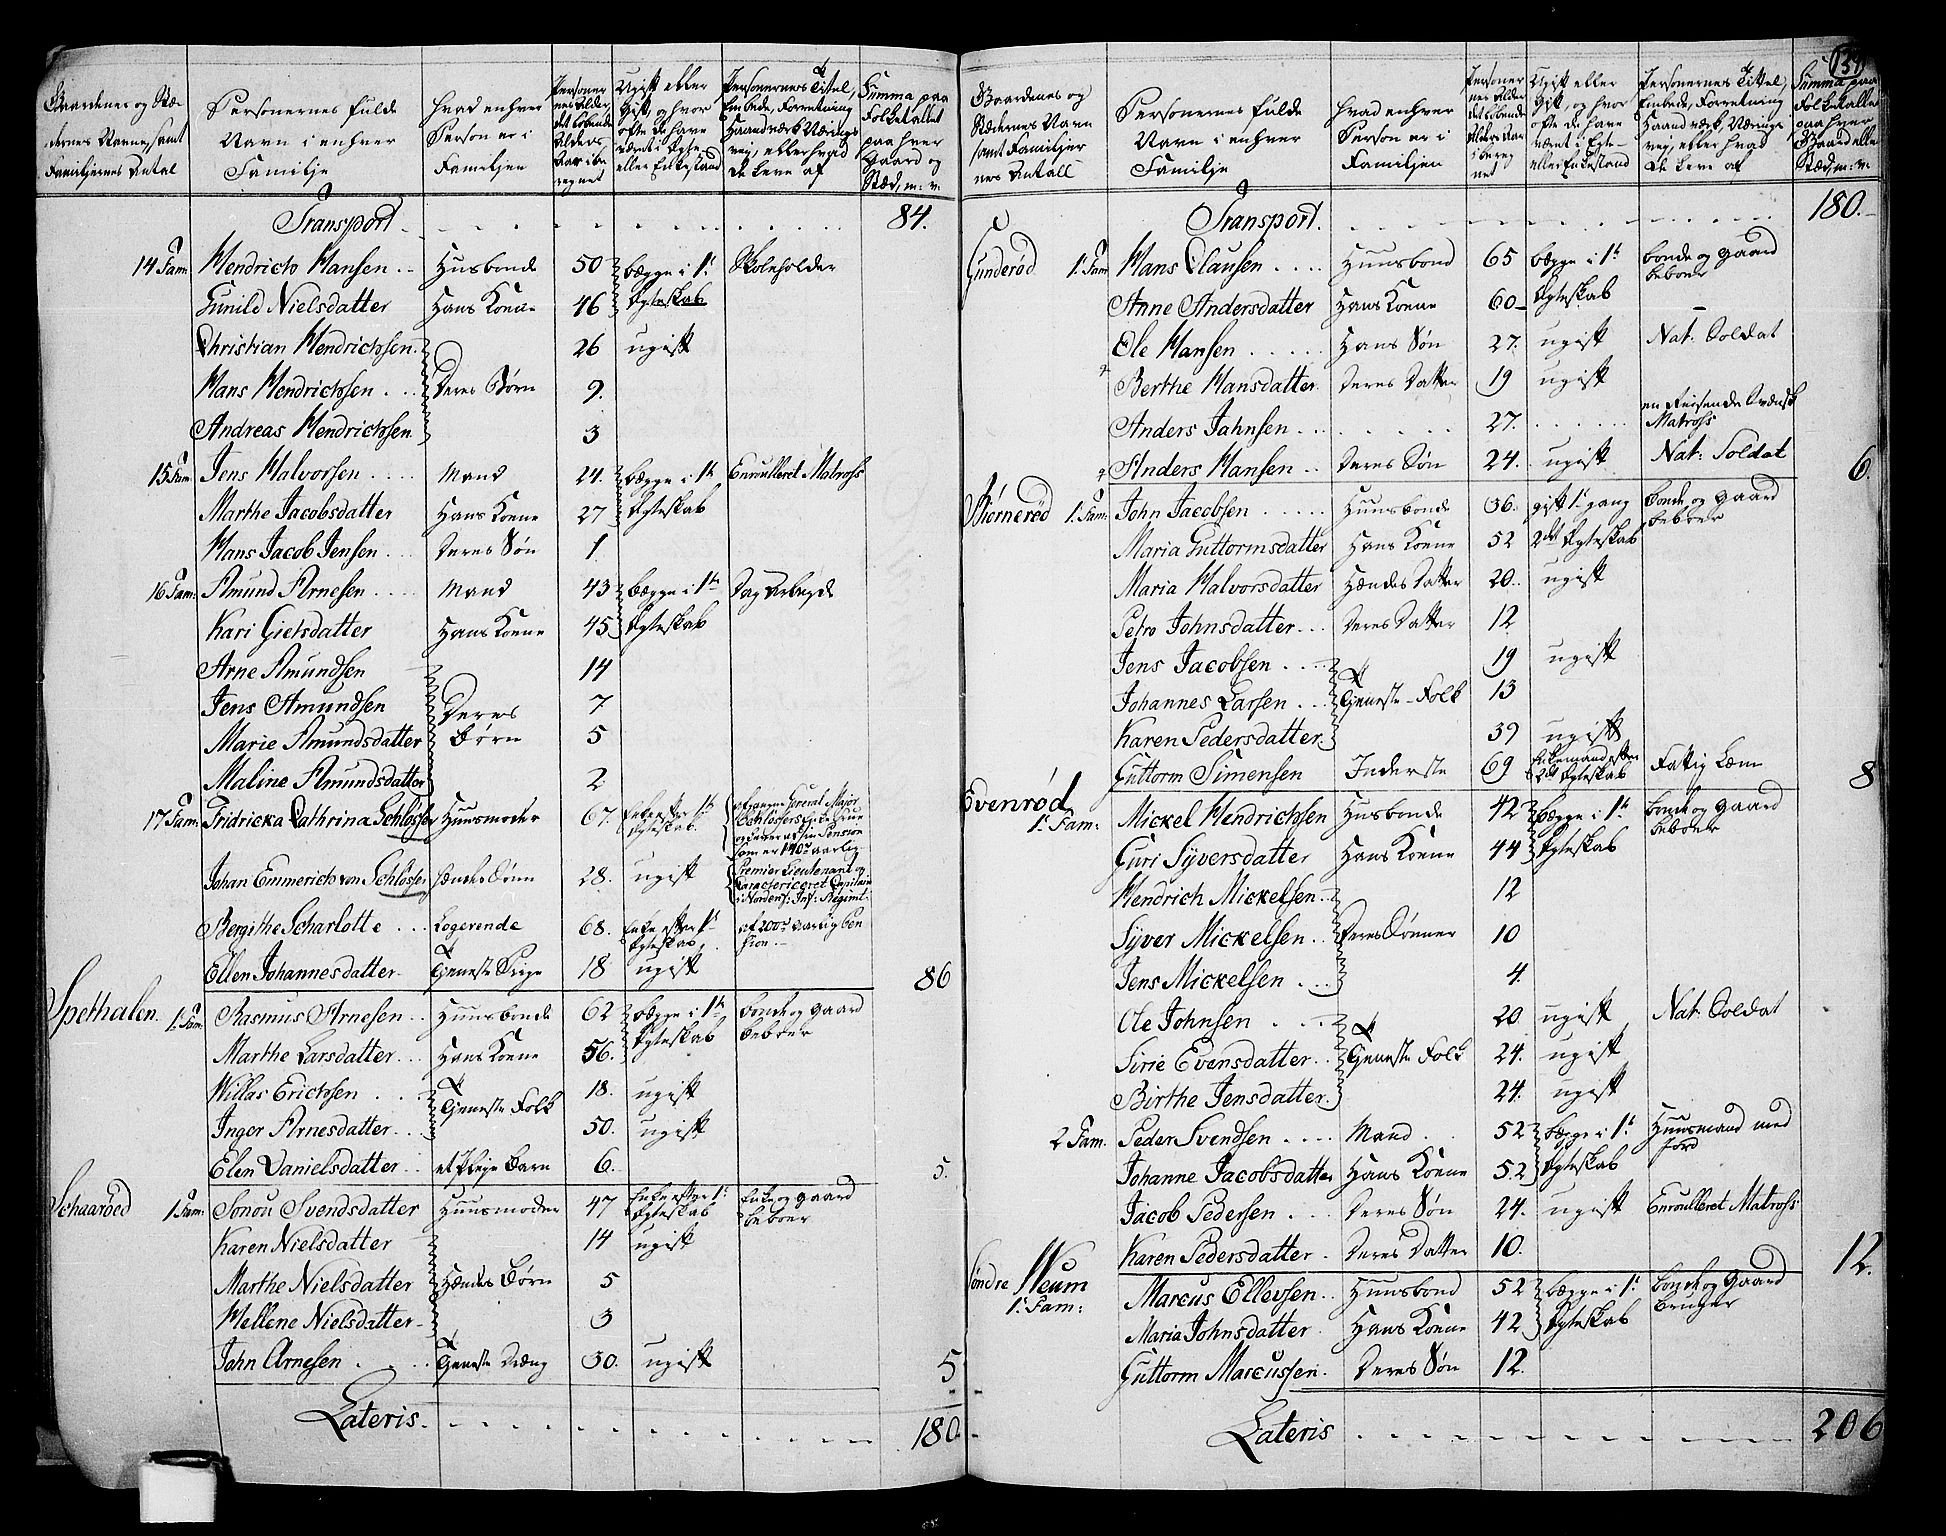 Gaardenes og Stæ-
dernes Navne, samt
Familjernes Antal
Personernes fulde
Navn i enhver
Familje
Hvad enhver
Person er i
Familjen
Personer
nes Alder,
det løbende
Alders
Aar ibe
regnet
Ugift eller
Gift, og hvor
ofte de have
været i Ægte-
eller Enkestand
Personernes Titel,
Embede, Forretning
Haandværk Nærings
vej, eller hvad
de leve af
Summa paa
Folketallet
paa hver
Gaard og
Stæd, m: v:
Transport 84.
14 Fam: Hendrich Hansen Husbonde 50 begge i 1t Skoleholder
Gunild Nielsdatter Hans Kone 46 Ægteskab
Christian Hendrichsen 26 ugift
Hans Hendrichsen Deres Børn 9.
Andreas Hendrichsen 3
15 Fam: Jens Halvorsen Mand 24. begge i 1te Enroulleret Matross
Marthe Jacobsdatter Hans Kone 27 Ægteskab
Hans Jacob Jensen Deres Søn 1
16 Fam: Amund Arnesen Mand 43 begge i 1te Dag Arbeyde
Kari Gietsdatter Hans Kone 45 Ægteskab
Arne Amundsen 14
Jens Amundsen Deres 7
Marie Amundsdatter Børn 5
Maline Amundsdatter 2
17 Fam: Fridricka Cathrina Schlösser Huusmoder 67. Enke efter 1te Ægteskab General Major Schlössers Pension som er 140 aarlig
Johan Emmerich von Schlösser Hændes Sønn 28. ugift Premier Lieutenant og Caracteriseret Capitain i Nordenf: Inf: Regiment.
Bergithe Scharlotte Logerende 68. Enke efter 1te Ægteskab af 200 aarlig Pension
Ellen Johannesdatter Tjeneste Pige 18 ugift 86
Spethalen 1. Fam: Rasmus Arnesen Huusbonde 62 begge i 1te Bonde og Gaard
Marthe Larsdatter Hans Kone 56. Ægteskab beboer
Willas Erichsen Tjeneste Folk 18. ugift
Inger Arnesdatter 50. ugift
Elen Danielsdatter et Pleje Barn 6. 5.
Schaaröed 1 Fam: Sonou Svendsdatter Huusmoder 47 Enke efter 1t Ægteskab Enke og Gaard beboer
Karen Nielsdatter 14 ugift
Marthe Nielsdatter Hændes Børn 5
Hellene Nielsdatter 3
John Arnesen Tjeneste Dræng 30. ugift 5
Lateris 180.
Gaardenes og
Stædernes Navn
samt Familjer
nes Antall
Personernes fulde
Navn i enhver
Familje
Hvad enhver
Person er i
Familjen
Personer
nes Alder
det løbende
Alders Aar
ibereg
net
Ugift eller
Gift, og hvor
ofte de have
været i Egte-
eller Enkestand
Personernes Titel,
Embede, Forretning
Haandværk, Nærings
vej, eller hvad
de leve af
Summa paa
Folketallet
paa hver
Gaard eller
Stæd, m: v:
Transport. 180.
Gunderød 1. Fam Hans Clausen Huusbond 65 begge i 1te Bonde og Gaard beboer
Anne Andersdatter Hans Kone 60 Ægteskab
Ole Hansen Hans Søn 27. ugift Nat: Soldat
Berthe Hansdatter Deres Datter 19 ugift
Anders Jahnsen 27. en Reisende Svensk Matross
Anders Hansen Deres Søn 24. ugift Nat: Soldat 6.
Biørnerød 1. Fam: John Jacobsen Huusbonde 36. gift 1t gang Bonde og Gaard beboer
Maria Guttormsdatter Hans Kone 52 2det Ægteskab
Maria Halvorsdatter Hændes Datter 20. ugift
Petro Johnsdatter Deres Datter 12
Jens Jacobsen 19 ugift
Johannes Larsen Tjeneste-Folk 13
Karen Pedersdatter 39 ugift
Guttorm Simensen Inderste 69 Enkemand efter 2det Ægteskab Fattig Lem 8
Evenrød 1. Fam: Mickel Hendrichsen Husbonde 42 begge i 1t Bonde og Gaard beboer
Guri Syversdatter Hans Kone 44 Ægteskab
Hendrich Mickelsen 12
Syver Mickelsen Deres Sønner 10
Jens Mickelsen 4.
Ole Johnsen 20 ugift Nat: Soldat
Sirie Evensdatter Tjeneste Folk 24. ugift
Birthe Jensdatter 24. ugift
2 Fam. Peder Svendsen Mand 52 begge i 1t Huusmand med Jord
Johanne Jacobsdatter Hans Kone 52 Ægteskab
Jacob Pedersen Deres Søn 24. ugift Enroulleret Matross
Karen Pedersdatter Deres Datter 10. 12.
Søndre Heum 1. Fam: Marcus Ellevsen Huusbond 52 begge i 1t Bonde og Gaard bruger
Maria Johnsdatter Hans Kone 42 Ægteskab
Guttorm Marcussen Deres Søn 12.
Lateris 206